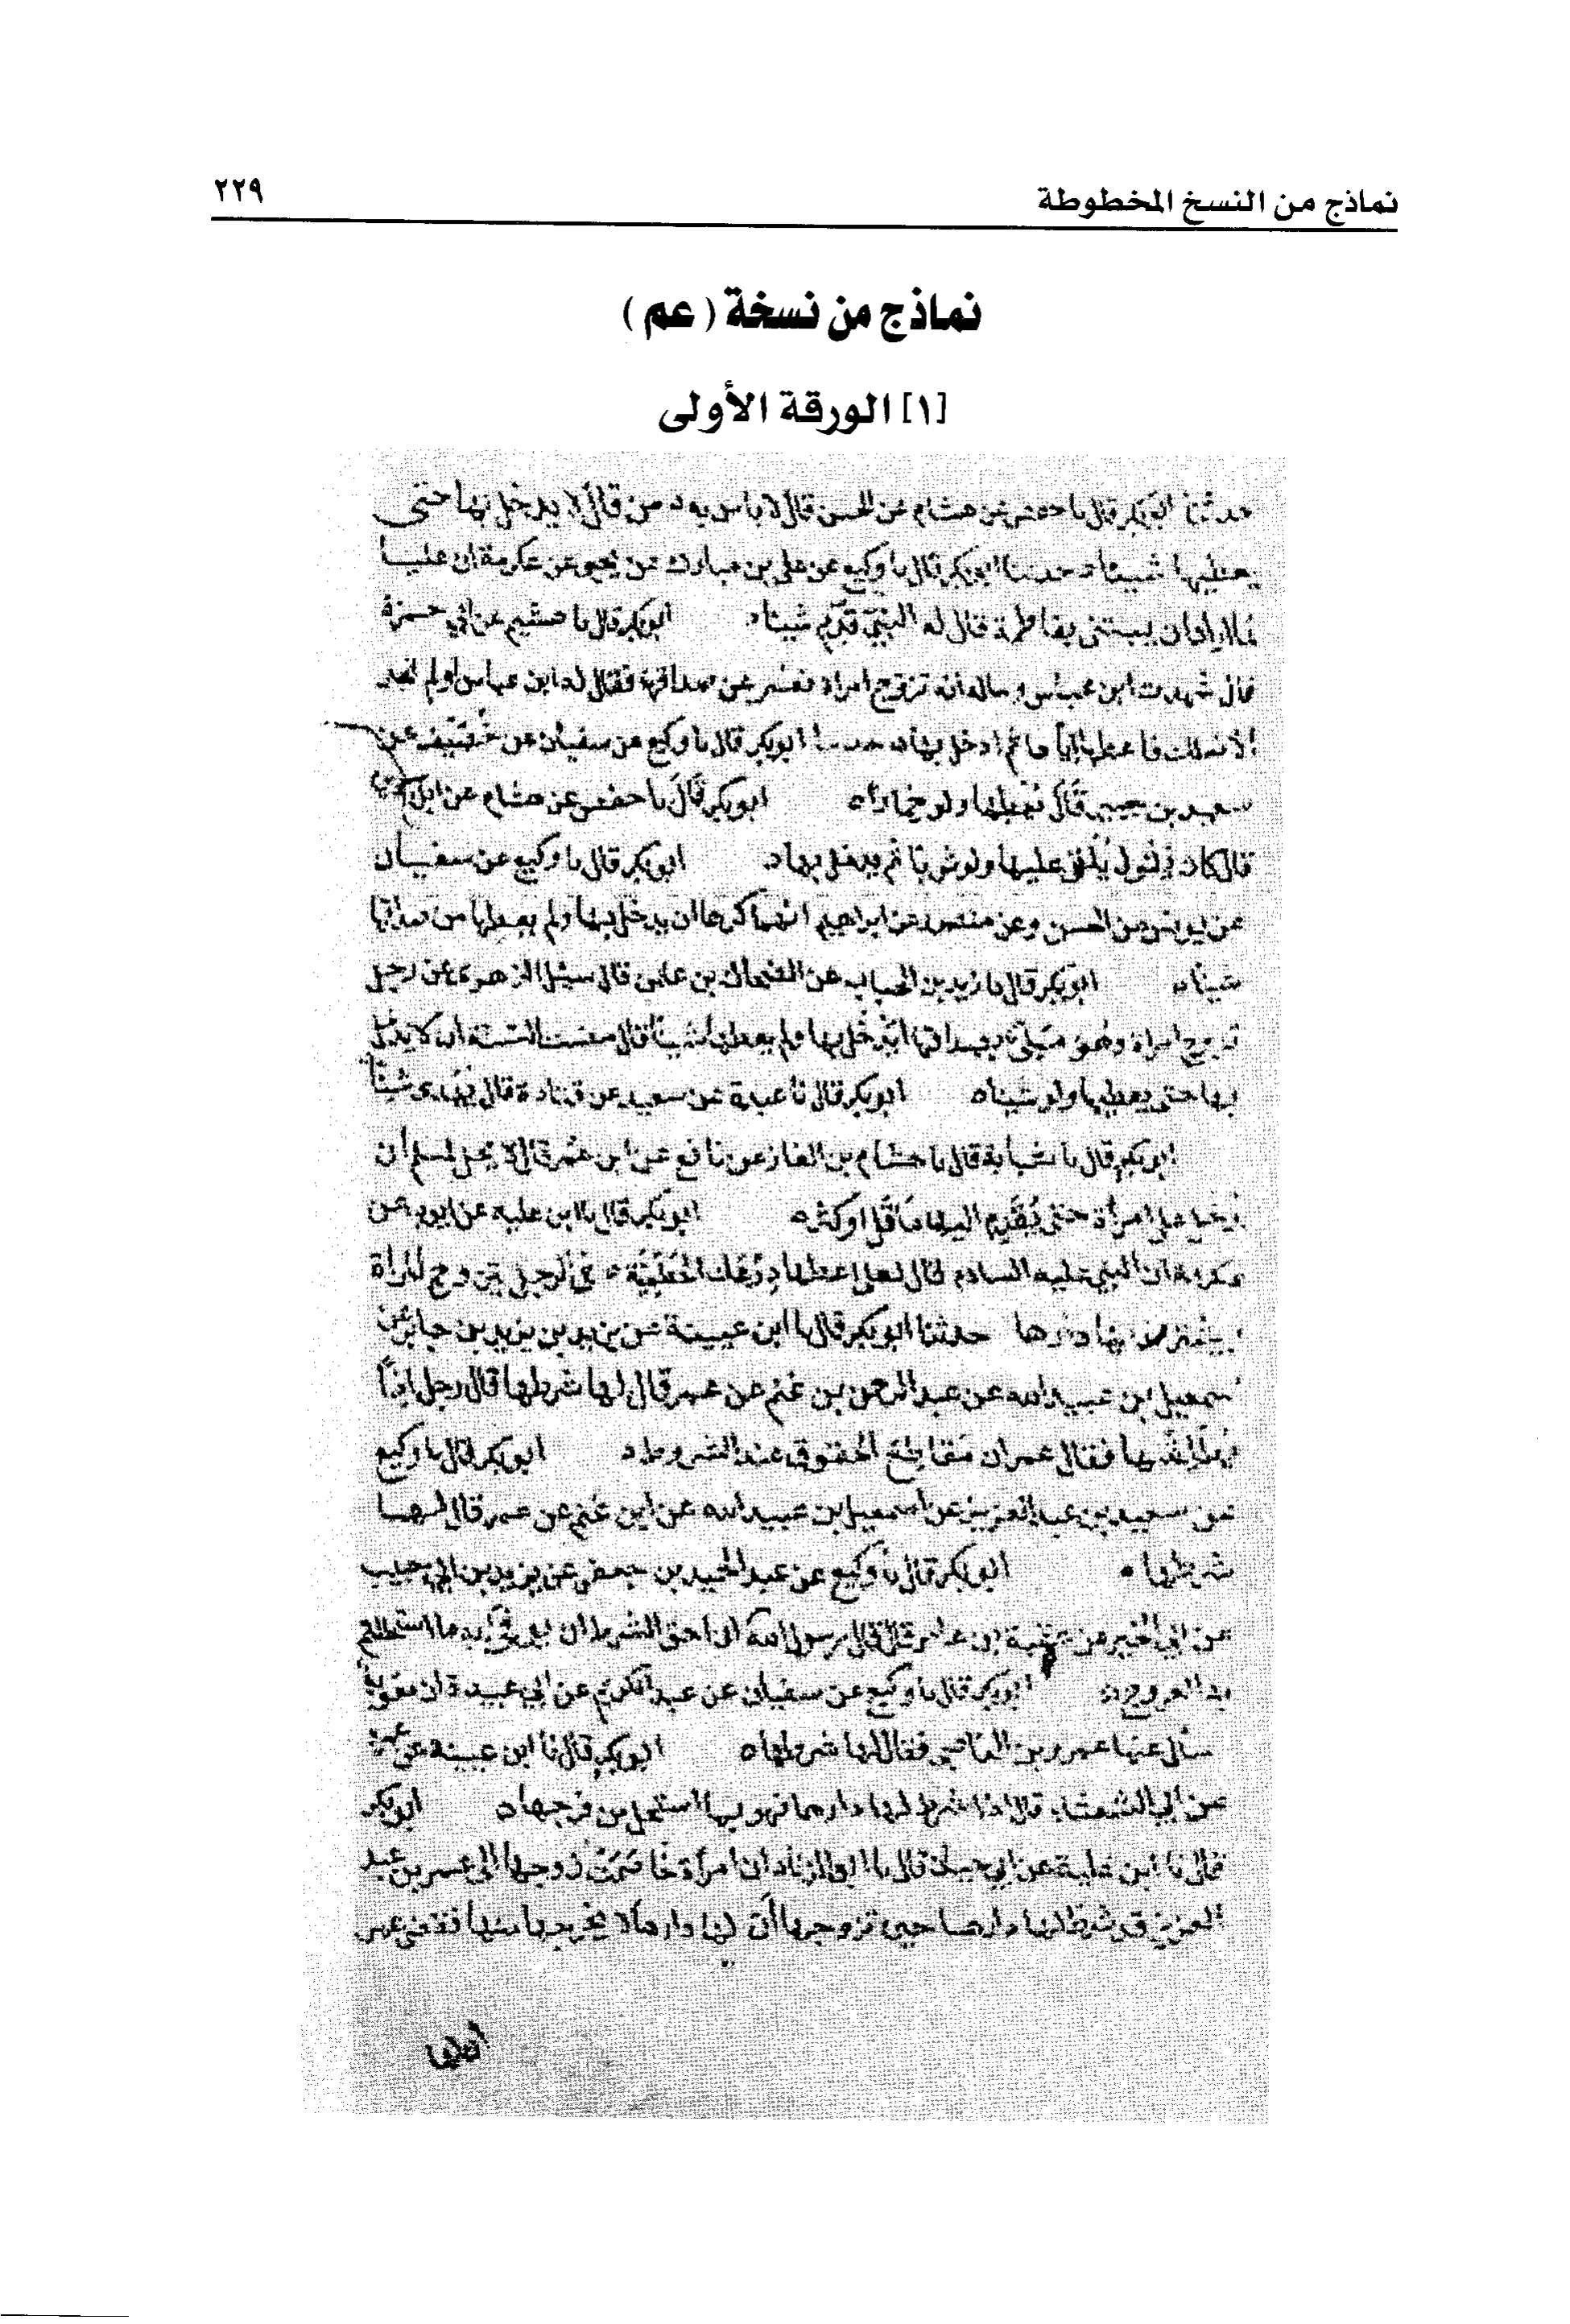 نماذج من النسخ المخطوطة
٢٢٩
نماذج من نسخة (عم)
[١] الورقة الأولى
حدثنا ابو بكر قال نا حفص عن هشام عن الحسن قال لا باس به ه من قال لا يدخل بها حتى
يعطيها شيئا ه حدثنا ابو بكر قال نا وكيع عن علي بن مبارك عن يحيى عن عكرمة ان عليا
لما اراد ان يبتني بفاطمة قال له النبي قدم شيئا ه ابو بكر قال نا هشيم عن ابي حمزة
قال شهدت ابن عباس وساله انه تزوج امراة فعسر عن صداقها فقال له ابن عباس ان لم تجد
الا نعلك فاعطها اياها ثم ادخل بها ه ابو بكر قال نا وكيع عن سفيان عن خصيف عن
سعيد بن جبير قال يعطيها ولو خمارا ه ابو بكر قال نا حفص عن هشام عن ابن سيرين
قال كان يقول يلقى عليها ولو ثوبا ثم يدخل بها ه ابو بكر قال نا وكيع عن سفيان
عن يونس عن الحسن وعن منصور عن ابراهيم انهما كرها ان يدخل بها ولم يعطها من صداقها
شيئا ه ابو بكر قال نا زيد بن الحباب عن الضحاك بن عثمن قال سئل الزهري عن رجل
تزوج امراة وهو ملي بصداقها ايدخل بها ولم يعطها شيئا قال مضت السنة ان لا يدخل
بها حتى يعطيها ولو شيئا ه ابو بكر قال نا عبدة عن سعيد عن قتادة قال يهدي شيئا
ابو بكر قال نا شبابة قال نا هشام بن الغاز عن نافع عن ابن عمر قال لا يحل لمسلم ان
يدخل على امرأة حتى يقدم اليها ما قل او كثر ه ابو بكر قال نا ابن علية عن ايوب عن
عكرمة ان النبي عليه السلام قال لعلي اعطها درعك الحطمية ه في الرجل يتزوج المراة
ويشترط لها دارها حدثنا ابو بكر قال نا ابن عيينة عن يزيد بن يزيد بن جابر عن
اسمعيل بن عبيد الله عن عبد الرحمن بن غنم عن عمر قال لها شرطها قال رجل اذا
يطلقنها فقال عمر ان مقاطع الحقوق عند الشروط ه ابو بكر قال نا وكيع
عن سعيد بن عبد العزيز عن اسمعيل بن عبيد الله عن ابن غنم عن عمر قال لها
شرطها ه ابو بكر قال نا وكيع عن عبد الحميد بن جعفر عن يزيد بن ابي حبيب
عن ابي الخير عن عقبة ابن عامر قال قال رسول الله ان احق الشرط ان يوفى به ما استحللتم
به الفروج ه ابو بكر قال نا وكيع عن سفيان عن عبد الكريم عن ابي عبيدة ان معوية
سأل عنها عمرو بن العاصي فقال لها شرطها ه ابو بكر قال نا ابن عيينة عن عمرو
عن ابي الشعثاء قال اذا شرط لها دارها فهو بما استحل من فرجها ه ابو بكر
قال نا ابن علية عن قال نا ابو الزناد ان امرأة خاصمت زوجها الى عمر بن عبد
العزيز قد شرط لها دارها حين تزوجها ان لها دارها لا يخرجها منها فقضى عمر